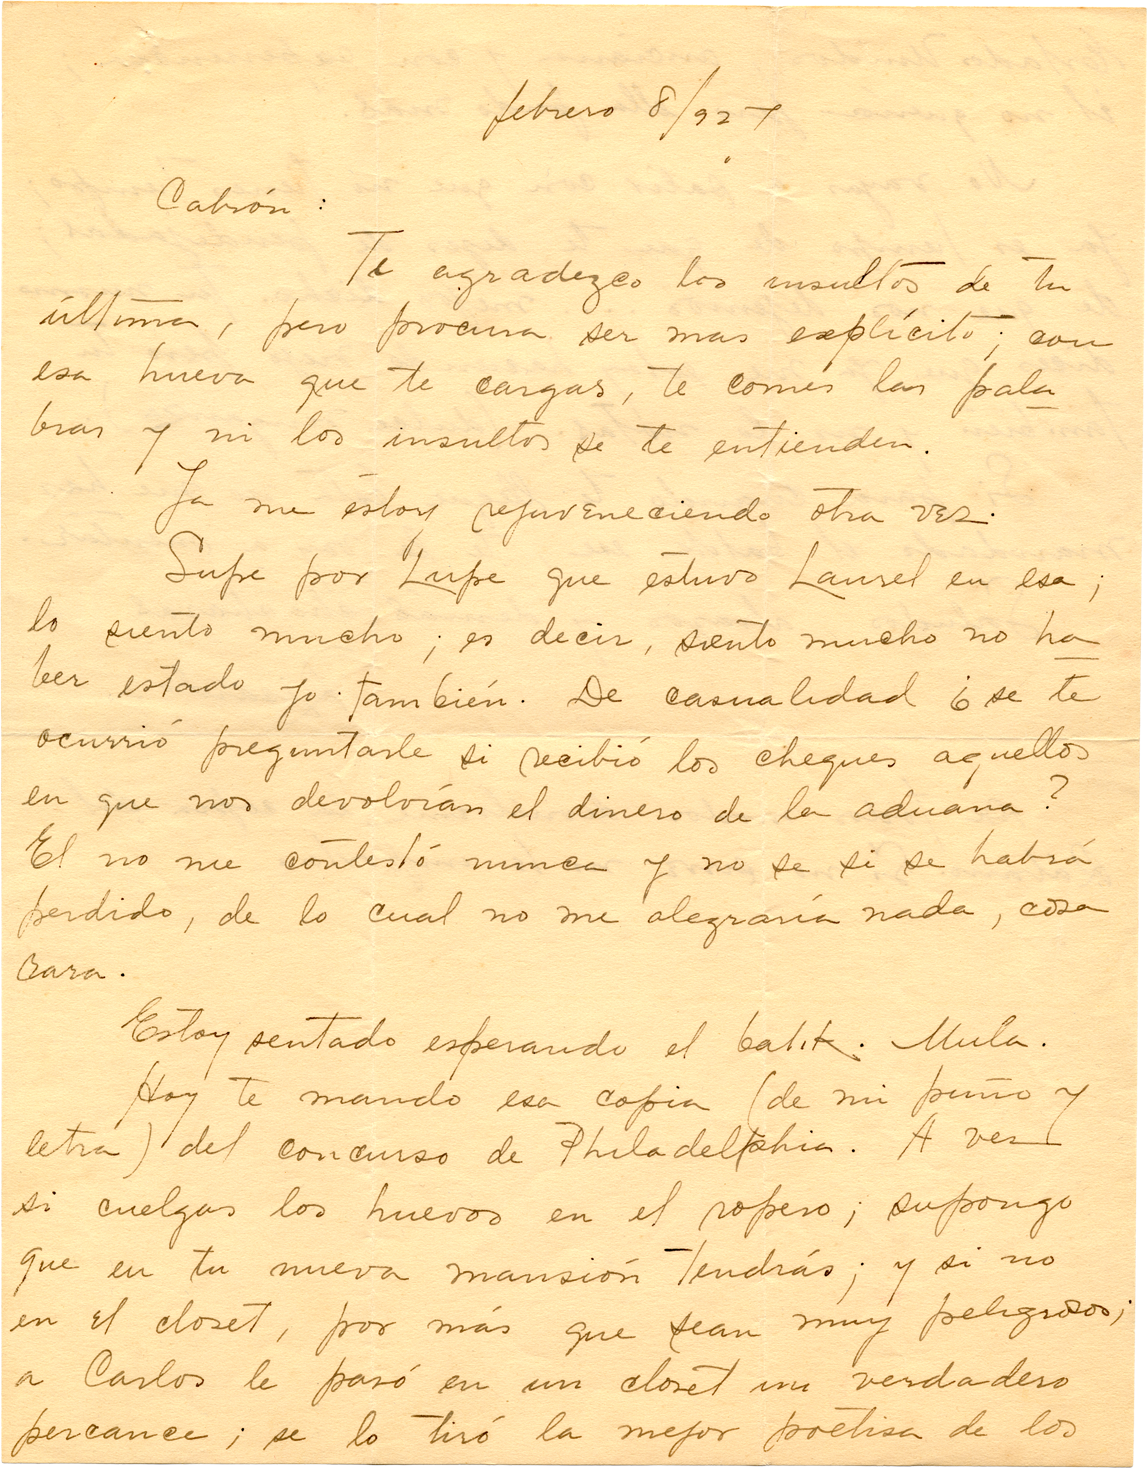 febrero 8/927
Cabrón:
Te agradezco los insultos de tu
última, pero procura ser mas explícito; con
esa hueva que te cargas, te comes las pala
bras y ni los insultos se te entienden.
Ya me estoy rejuveneciendo otra vez.
Supe por Lupe que estuvo Laurel en esa;
lo siento mucho; es decir, siento mucho no ha
ber estado yo también. De casualidad ¿se te
ocurrió preguntarle si recibió los cheques aquellos
en que nos devolvían el dinero de la aduana?
El no me contestó nunca y no se si se habrá
perdido, de lo cual no me alegraría nada, cosa
rara.
Estoy sentado esperando el batik. Mula.
Hoy te mando esa copia (de mi puño y
letra) del concurso de Philadelphia. A ver
si cuelgas los huevos en el ropero; supongo
que en tu nueva mansión tendrás; y si no
en el closet, por más que sean muy peligrosos;
a Carlos le pasó en un closet un verdadero
percance; se lo tiró la mejor poetisa de los